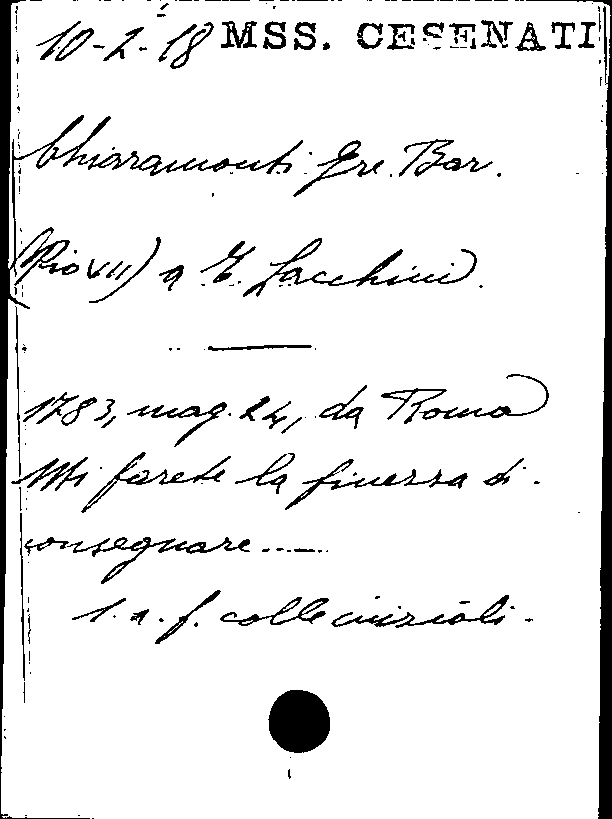 10-2-18 MSS. CESENATI
Chiaramonti Gre. Bar.
(Pio VII) a E. Lacchini.
1783, mag. 24, da Roma
Mi farete la finezza di
consegnare.....
l. a. f. colle iniziali.